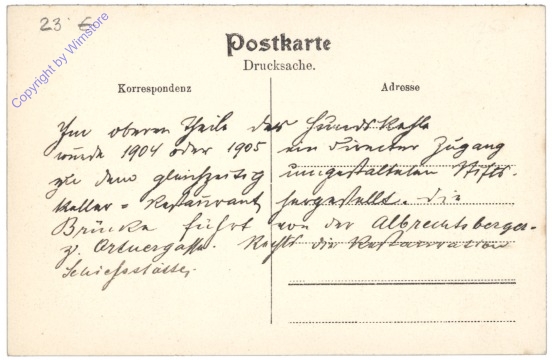 23 €
Copyright by Wimstore
Postkarte
Drucksache.
Korrespondenz
Adresse
Im oberen Theile der Hundskehle
wurde 1904 oder 1905 ein directer Zugang
zu dem gleichzeitig umgestalteten Stifts-
keller-Restaurant hergestellt. Die
Brücke führt von der Albrechtsberger-
z. Ortnergasse. Rechts die Restauration
Schießstätte.